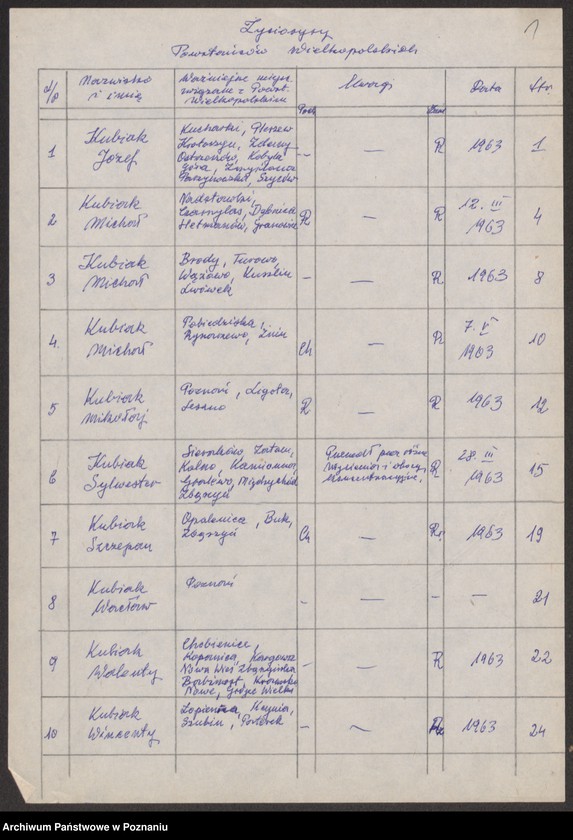 Życiorysy
Powstańców Wielkopolskich
1
l/p
Nazwisko
i imię
Ważniejsze miejsc.
związane z Powst.
Wielkopolskim
Uwagi
Data
Str.
1
Kubiak
Józef
Kucharki, Pleszew
Krotoszyn, Zduny
Ostrzeszów, Kobyla
Góra,
Parzynów, Syców
–
—
R
1963
1
2
Kubiak
Michał
Czarnylas, Dębnica
Hetmanów, Granowiec
R
—
R
12. III
1963
4
3
Kubiak
Michał
Brody, Turowo,
Wąsowo, Kuślin
Lwówek
–
—
R
1963
8
4.
Kubiak
Michał
Pobiedziska,
Rynarzewo, Żnin
Ch
—
R
7. V
1963
10
5
Kubiak
Mikołaj
Poznań, Ligota,
Leszno
R
—
R
1963
12
6
Kubiak
Sylwester
Sieraków, Zatom,
Kolno, Kamionna,
Grolewo, Międzychód
Zbąszyń
Przeszedł przez różne
więzienia i obozy
koncentracyjne.
R
28 III
1963
15
7
Kubiak
Szczepan
Opalenica, Buk,
Zbąszyń
Ch
—
R.
1963
19
8
Kubiak
Wacław
Poznań
-
—
–
—
21
9
Kubiak
Walenty
Chobienice,
Kopanica, Kargowa
Nowa Wieś Zbąska
Babimost,
Nowe, Grójec Wielki
–
—
R
1963
22
10
Kubiak
Wincenty
Łopienno, Kcynia,
Szubin,
–
~
R
1963
24
Archiwum Państwowe w Poznaniu